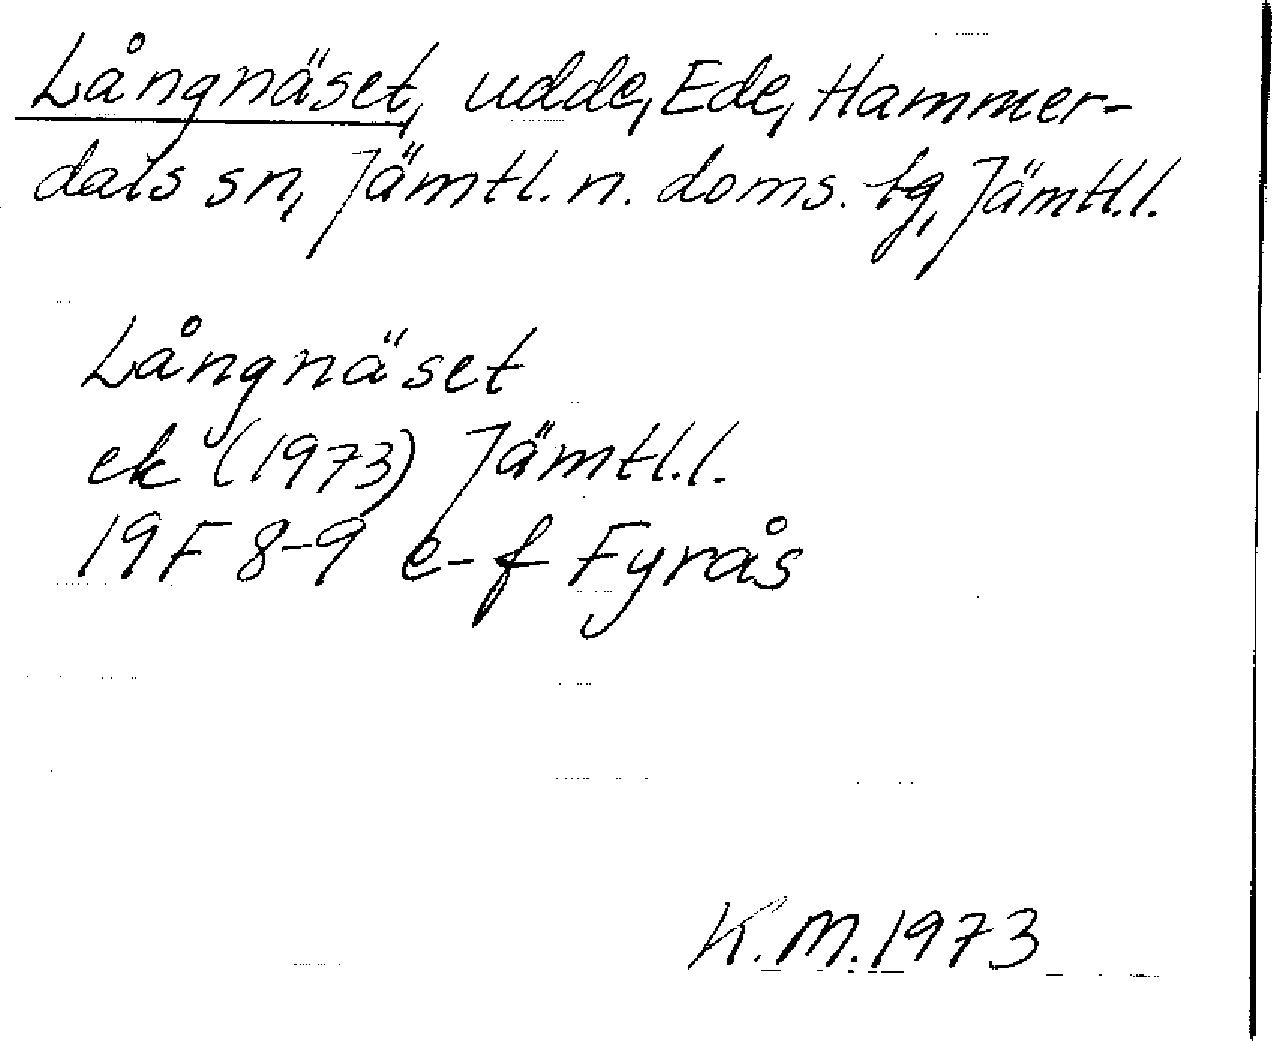 Långnäset, udde, Ede, Hammer-
dals sn, Jämtl. n. doms. tg, Jämtl.l.
Långnäset
ek (1973) Jämtl.l.
19F 8-9 e-f Fyrås
K.M. 1973